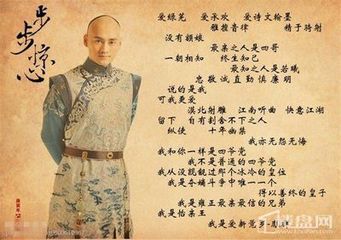 步步惊心
爱绿芜 爱承欢 爱诗文翰墨
雅擅音律 精于骑射
没有额娘
最亲之人是四哥
一朝相知 终生知己
最知之人是若曦
忠敬诚直勤慎廉明
说的是我
可我更爱
漠北射雕 江南听曲 快意江湖
留下 自有割舍不下之人
纵使 十年幽禁
我亦无怨无悔
我和你一样是四爷党
我不是普通的四爷党
我从没觊觎过那个冰冷的位置
我是夺嫡斗争中唯一一个
得以善终的皇子
我是雍王最亲最信的兄弟
我是怡亲王
我是爱新觉罗·胤祥
楼盘网